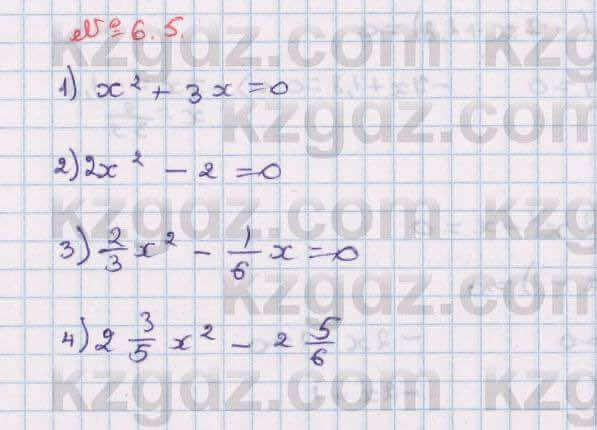 № 6.5.
1) x² + 3x = 0
2) 2x² - 2 = 0
3) 2/3 x² - 1/6 x = 0
4) 2 3/5 x² - 2 5/6
kzgdz.com
kzgdz.com
kzgdz.com
kzgdz.com
kzgdz.com